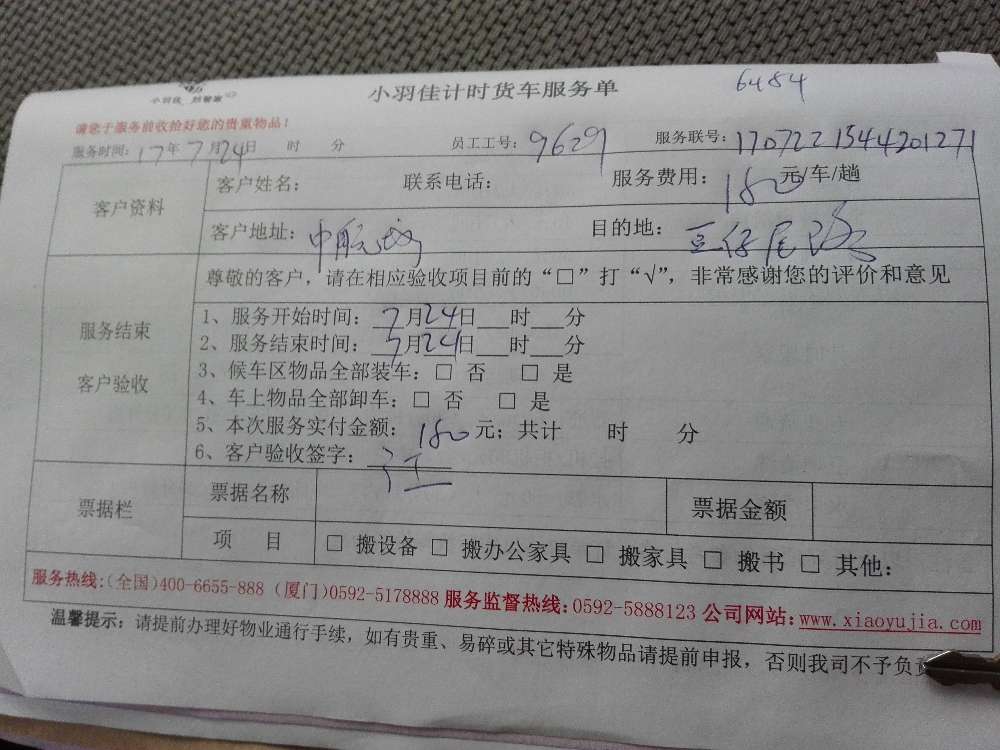 小羽佳 好管家
小羽佳计时货车服务单 6484
请您于服务前收拾好您的贵重物品！
服务时间：17年7月24日 时 分 员工工号：9629 服务联号：1707221544201271
客户资料
客户姓名： 联系电话： 服务费用：180元/车/趟
客户地址：中航城 目的地：豆仔尾路
服务结束
客户验收
尊敬的客户，请在相应验收项目前的“□”打“√”，非常感谢您的评价和意见
1、服务开始时间：7月24日___时___分
2、服务结束时间：7月24日___时___分
3、候车区物品全部装车：□ 否 □ 是
4、车上物品全部卸车：□ 否 □ 是
5、本次服务实付金额：180元；共计 时 分
6、客户验收签字：
票据栏
票据名称 票据金额
项 目 □ 搬设备 □ 搬办公家具 □ 搬家具 □ 搬书 □ 其他：
服务热线:(全国)400-6655-888 (厦门)0592-5178888 服务监督热线:0592-5888123 公司网站:www.xiaoyujia.com
温馨提示：请提前办理好物业通行手续，如有贵重、易碎或其它特殊物品请提前申报，否则我司不予负